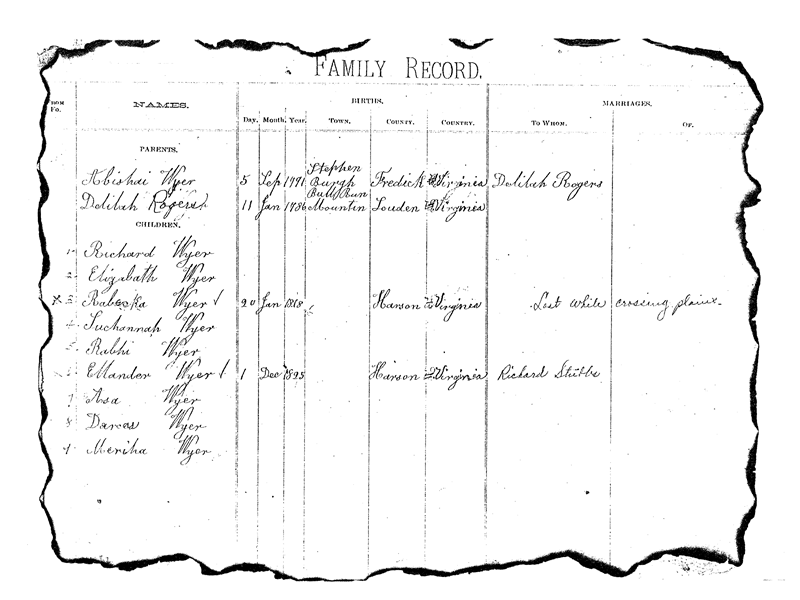 FAMILY RECORD.
NAMES. BIRTHS. MARRIAGES.
Day. Month. Year. Town. County. Country. To Whom. Of.
PARENTS.
Abishai Wyer 5 Sep Stephen Burgh Fredick Virginia Delilah Rogers
Delilah Rogers 11 Jan 1786 Bull Run Mountin Louden Virginia
CHILDREN.
1 Richard Wyer
2 Elizabath Wyer
X 3 Rabecka Wyer 20 Jan 1818 Harson Virginia Lost while crossing plains.
4 Suchannah Wyer
5 Rabhi Wyer
Ellander Wyer 1 Dec 1825 Harson Virginia Richard Stubbs
7 Asa Wyer
8 Darcas Wyer
Meriha Wyer